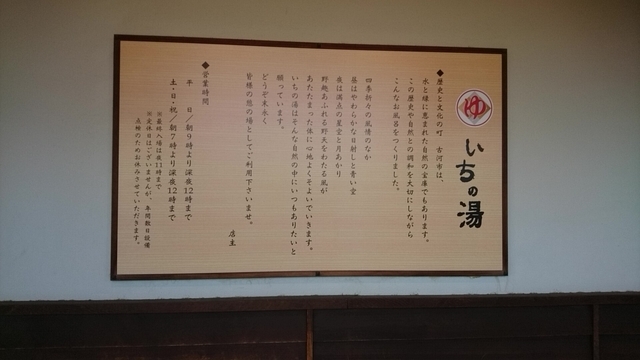 ゆ
いちの湯
◆歴史と文化の町 古河市は、
水と緑に恵まれた自然の宝庫でもあります。
この歴史や自然との調和を大切にしながら
こんなお風呂をつくりました。
四季折々の風情のなか
昼はやわらかな日射しと青い空
夜は満点の星空と月あかり
野趣あふれる野天をわたる風が
あたたまった体に心地よくそよいでいきます。
いちの湯はそんな自然の中にいつもありたいと
願っています。
どうぞ末永く
皆様の憩の場としてご利用下さいませ。
店主
◆営業時間
平 日/朝9時より深夜12時まで
土・日・祝/朝7時より深夜12時まで
※最終入場は夜11時まで
※定休日はございませんが、年間数日設備
点検のためお休みさせていただきます。